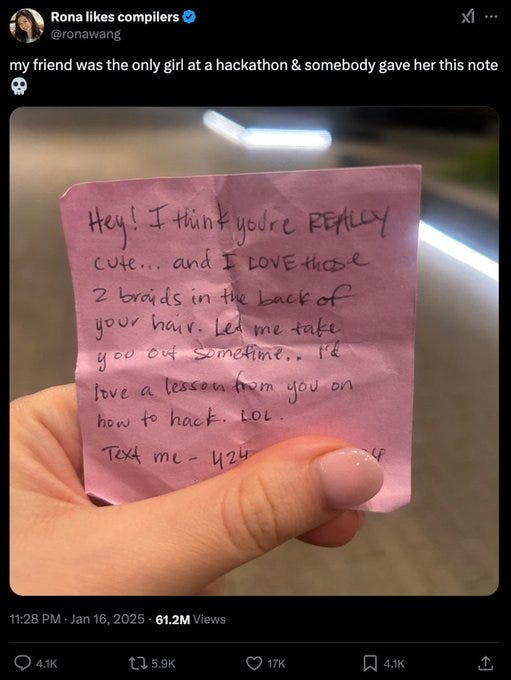 Rona likes compilers
@ronawang
my friend was the only girl at a hackathon & somebody gave her this note
💀
Hey! I think you're REALLY
cute... and I LOVE those
2 braids in the back of
your hair. Let me take
you out sometime.. I'd
love a lesson from you on
how to hack. LOL.
Text me - 424
11:28 PM · Jan 16, 2025 · 61.2M Views
4.1K 5.9K 17K 4.1K